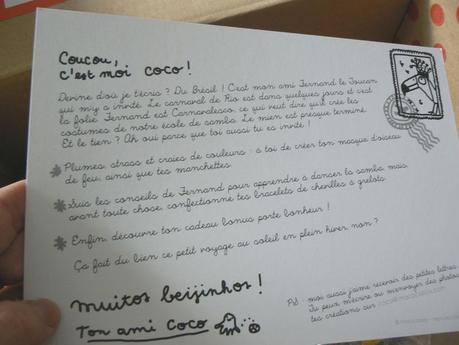 Coucou,
c'est moi coco !
Devine d'où je t'écris ? Du Brésil ! C'est mon ami Fernand le Toucan
qui m'y a invité. Le carnaval de Rio est dans quelques jours et c'est
la folie. Fernand est Carnavalesco, ce qui veut dire qu'il crée les
costumes de notre école de samba. Le mien est presque terminé.
Et le tien ? Ah oui parce que toi aussi tu es invité !
Plumes, strass et craies de couleurs : à toi de créer ton masque d'oiseau
de feu, ainsi que tes manchettes.
Suis les conseils de Fernand pour apprendre à danser la samba, mais,
avant toute chose, confectionne tes bracelets de chevilles à grelots.
Enfin, découvre ton cadeau bonus porte bonheur !
Ça fait du bien ce petit voyage au soleil en plein hiver, non ?
muitos beijinhos !
Ton ami Coco
Ps : moi aussi j'aime recevoir des petites lettres
Tu peux m'écrire ou m'envoyer des photos
tes créations sur